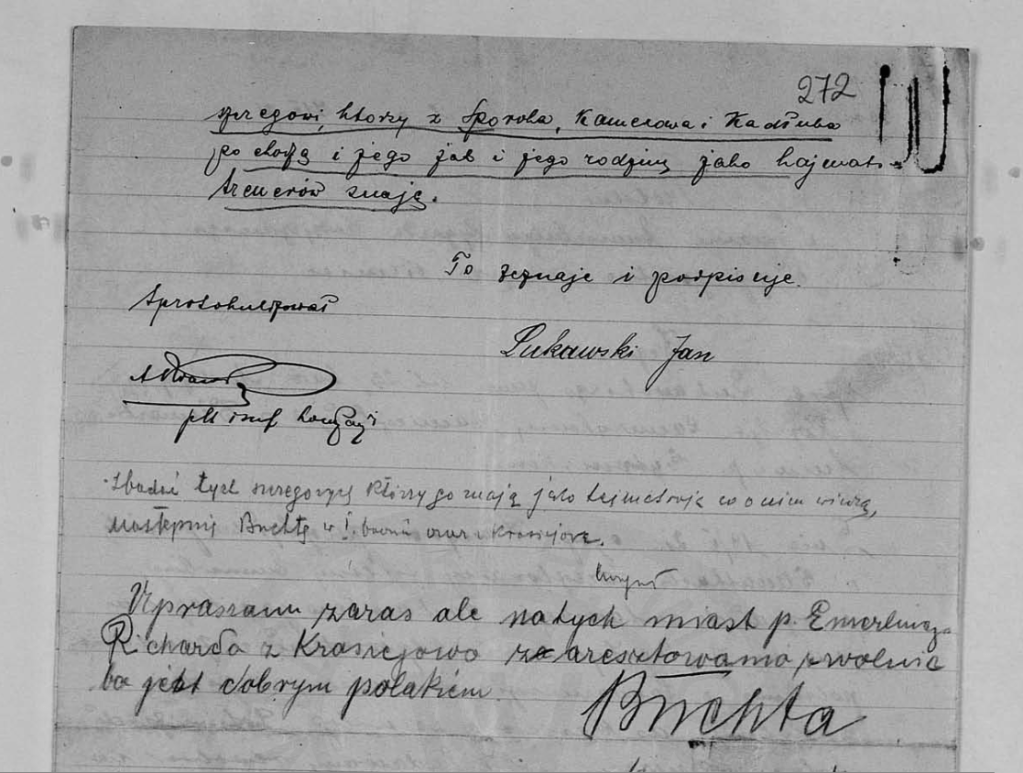 272
szeregowi, ktorzy z Sporoka, Kamerowa i Kadłuba
po chodzą i jego jak i jego rodzinę jako hajmat-
trenerów znają.
To zeznaje i podpisuje.
Sprotokulizował
Lukawski Jan
Zbadać tych szeregowych którzy go znają jako hajmatroja co o nim wiedzą,
następnie Buchtę w I. baonie oraz
Upraszam zaras ale natych miast p. Emerlinga
Richarda z Krasiejowa zaresztowano zwolnić
bo jest dobrym polakiem
Buchta